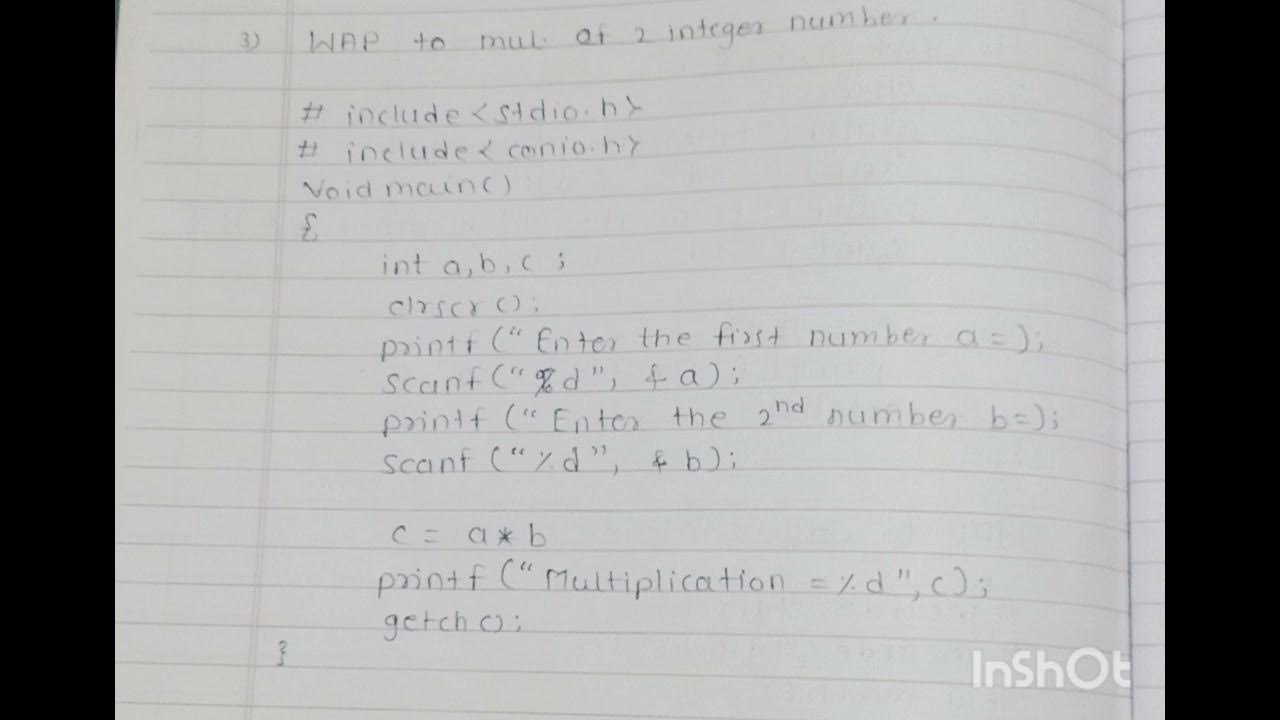 3) WAP to mul. of 2 integer number.
# include <stdio.h>
# include < conio.h>
Void main()
{
int a, b, c ;
clrscr ();
printf (“ Enter the first number a = );
scanf (“ %d ”, & a) ;
printf (“ Enter the 2nd number b = );
scanf (“ %d ”, & b) ;
c = a * b
printf (“ Multiplication = %d ”, c) ;
getch () ;
}
InShOt